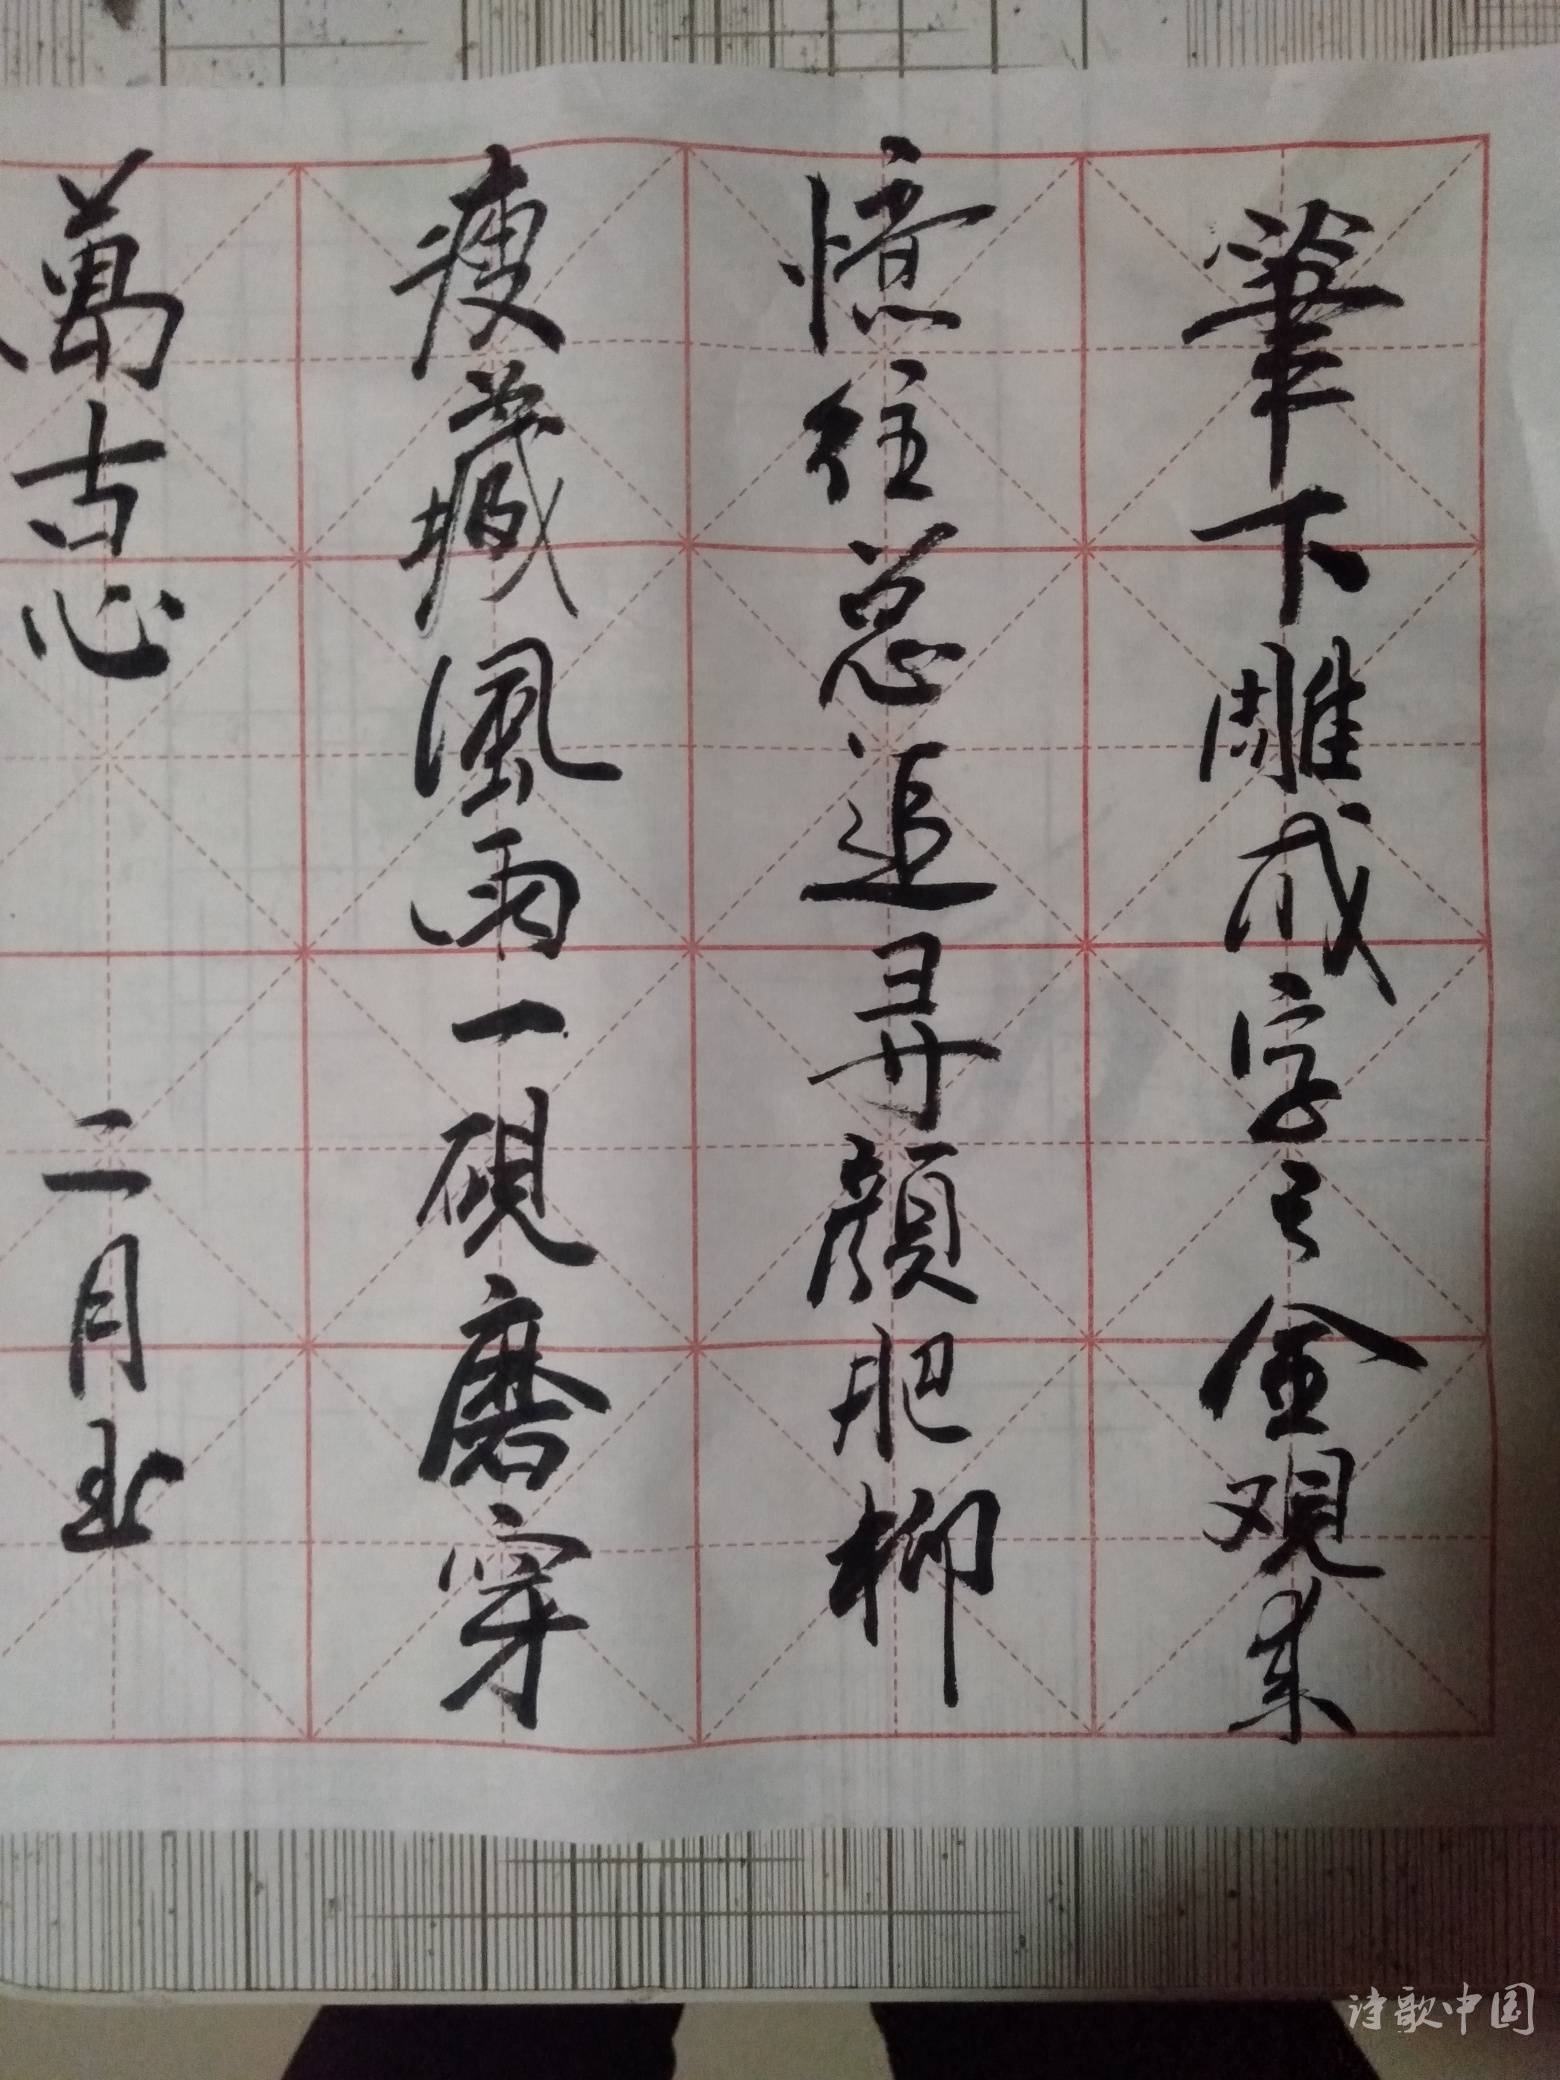 筆下雕成字字金观来
憶往总追尋顏肥柳
瘦藏風雨一硯磨穿
萬古心 二月玉
诗歌中国